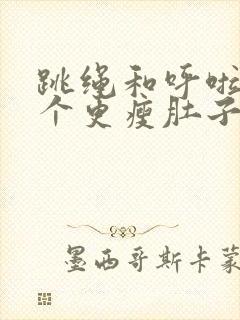 跳绳和呼啦
个更瘦肚子
墨西哥斯卡蒙